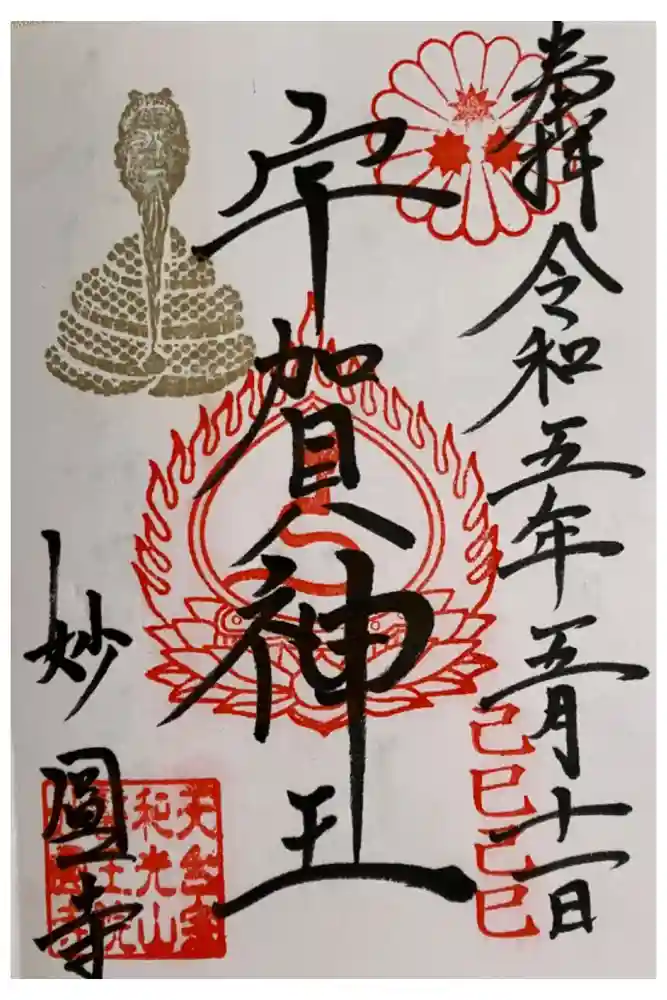 奉拝 令和五年五月十一日
己巳己巳
宇賀神王
妙圓寺
天台宗
和光山